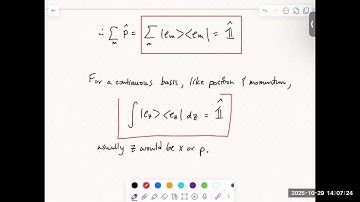 ∴ ∑_m P̂ = ∑_m |e_m><e_m| = 𝟙̂
For a continuous basis, like position & momentum,
∫ |e_z><e_z| dz = 𝟙̂
usually z would be x or p.
2025-10-29 14:07:24